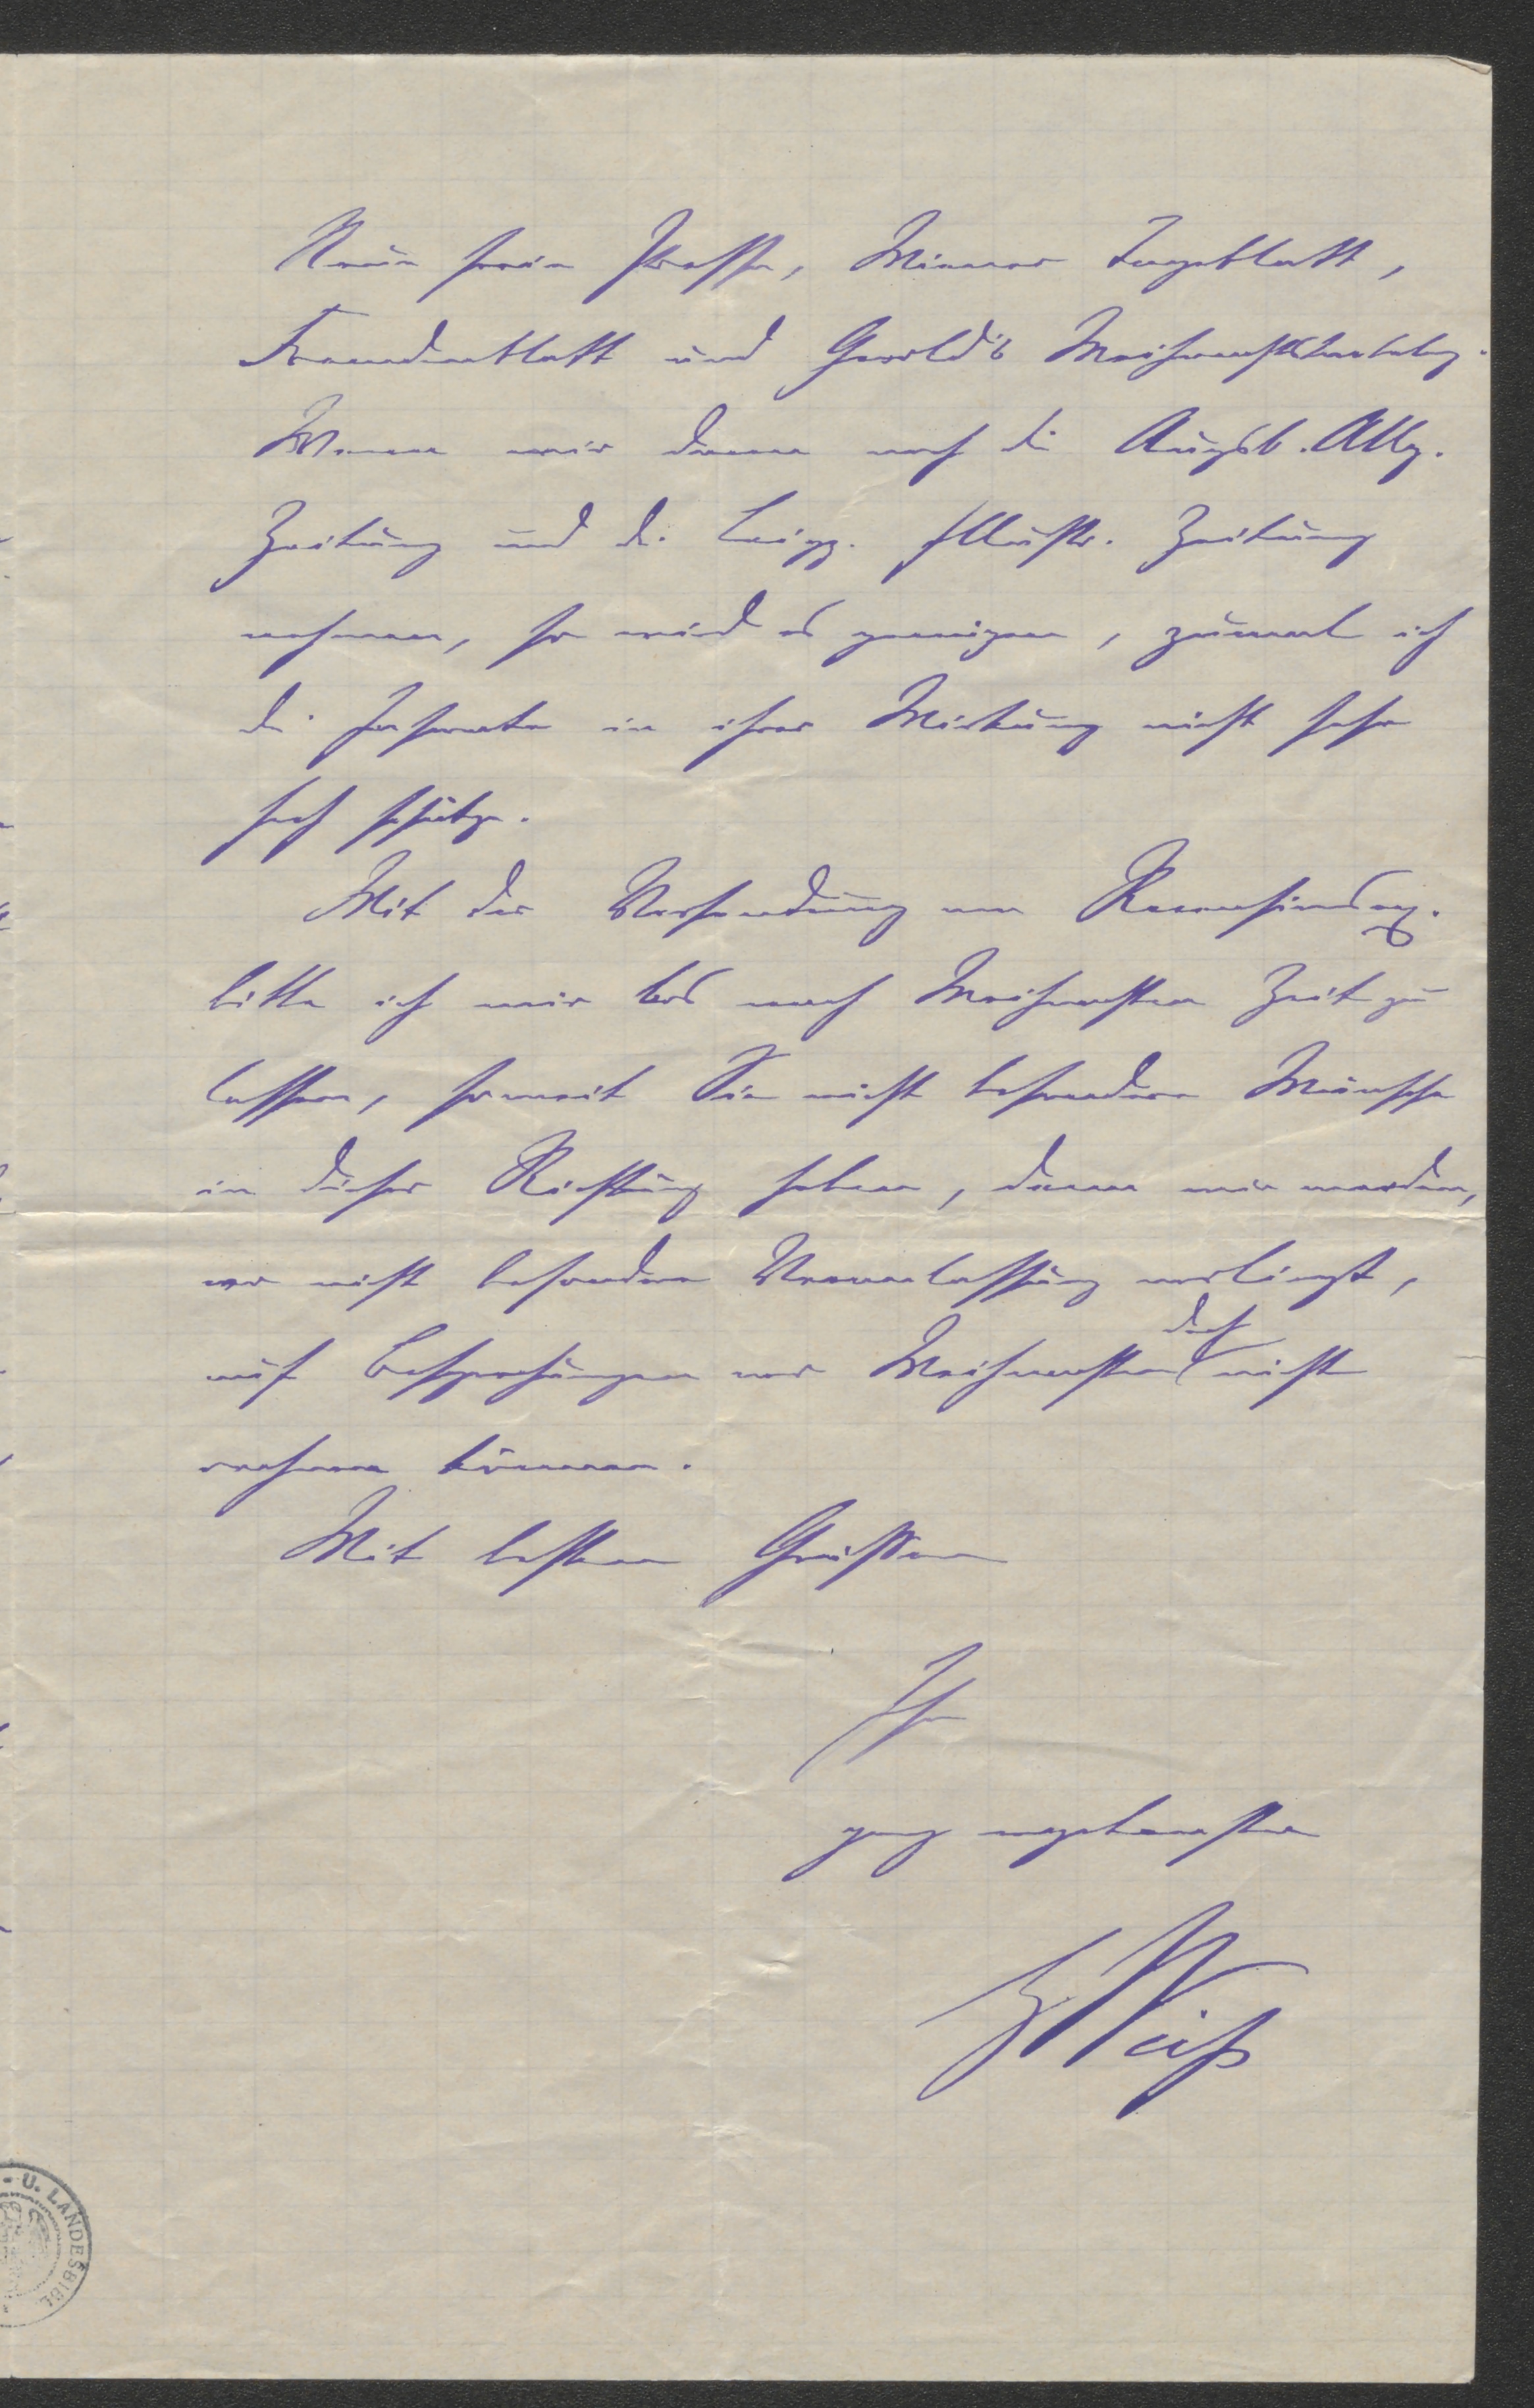 Neue freie Presse, Wiener Tageblatt,
Fremdenblatt und Gerold's Weihnachtskatalog.
Wenn wir dann noch die Augsb. Allg.
Zeitung und die Leipz. Illustr. Zeitung
nehmen, so wird es genügen, zumal ich
die Inserate in ihrer Wirkung nicht sehr
hoch schätze.
Mit der Versendung von Recensionsex.
bitte ich mir bis nach Weihnachten Zeit zu
lassen, soweit Sie nicht besondere Wünsche
in dieser Richtung haben, denn wir werden,
wo nicht besondere Veranlassung vorliegt,
auf Besprechungen vor Weihnachten doch nicht
rechnen können.
Mit besten Grüßen
Ihr
ganz ergebenster
Weiß
- U. LANDESBIBL